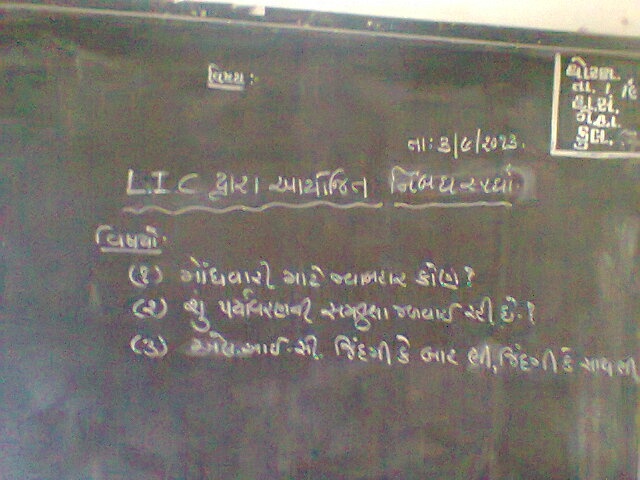 વિષય :-
ધોરણ.
તા.
હા.સં.
ગે.હા.
કુલ.
તા: ૩/૭/૨૦૧૩.
L.I.C દ્વારા આયોજિત નિબંધ સ્પર્ધા
વિષયો:-
(૧) મોંઘવારી માટે જવાબદાર કોણ ?
(૨) શું પર્યાવરણની સમતુલા જળવાઈ રહી છે. ?
(૩) એલ.આઈ.સી. જિંદગી કે બાદ ભી, જિંદગી કે સાથ ભી